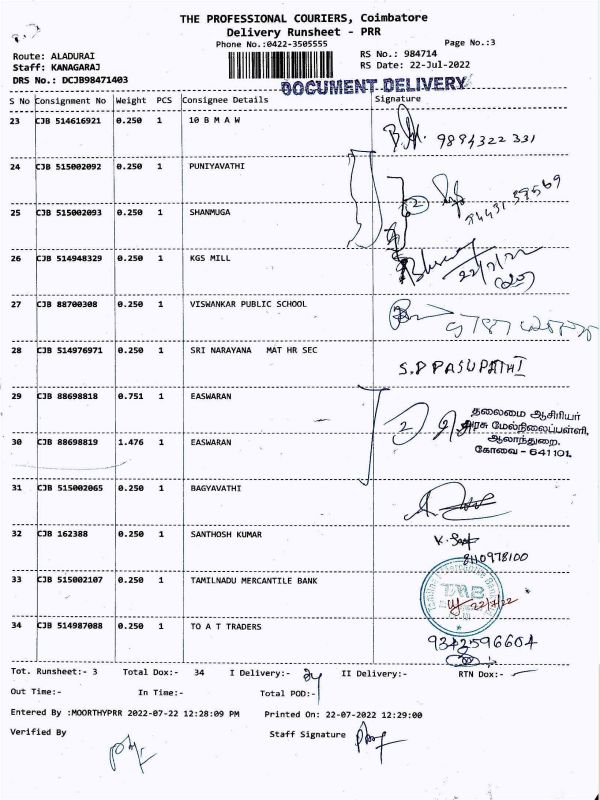 THE PROFESSIONAL COURIERS, Coimbatore
Delivery Runsheet - PRR
Phone No.:0422-3505555
Page No.:3
Route: ALADURAI
RS No.: 984714
Staff: KANAGARAJ
RS Date: 22-Jul-2022
DRS No.: DCJB98471403
DOCUMENT DELIVERY
S No Consignment No Weight PCS Consignee Details Signature
23 CJB 514616921 0.250 1 10 B M A W
9894322 331
24 CJB 515002092 0.250 1 PUNIYAVATHI
2
25 CJB 515002093 0.250 1 SHANMUGA
26 CJB 514948329 0.250 1 KGS MILL
22/7/22
27 CJB 88700308 0.250 1 VISWANKAR PUBLIC SCHOOL
28 CJB 514976971 0.250 1 SRI NARAYANA MAT HR SEC
S.P PASUPATHI
29 CJB 88698818 0.751 1 EASWARAN
2
தலைமை ஆசிரியர்
அரசு மேல்நிலைப்பள்ளி,
ஆலாந்துறை.
கோவை - 641101.
30 CJB 88698819 1.476 1 EASWARAN
31 CJB 515002065 0.250 1 BAGYAVATHI
32 CJB 162388 0.250 1 SANTHOSH KUMAR
8110978100
33 CJB 515002107 0.250 1 TAMILNADU MERCANTILE BANK
TMB
22/7/22
34 CJB 514987088 0.250 1 TO A T TRADERS
9342596604
Tot. Runsheet:- 3 Total Dox:- 34 I Delivery:- II Delivery:- RTN Dox:-
Out Time:- In Time:- Total POD:-
Entered By :MOORTHYPRR 2022-07-22 12:28:09 PM Printed On: 22-07-2022 12:29:00
Verified By Staff Signature